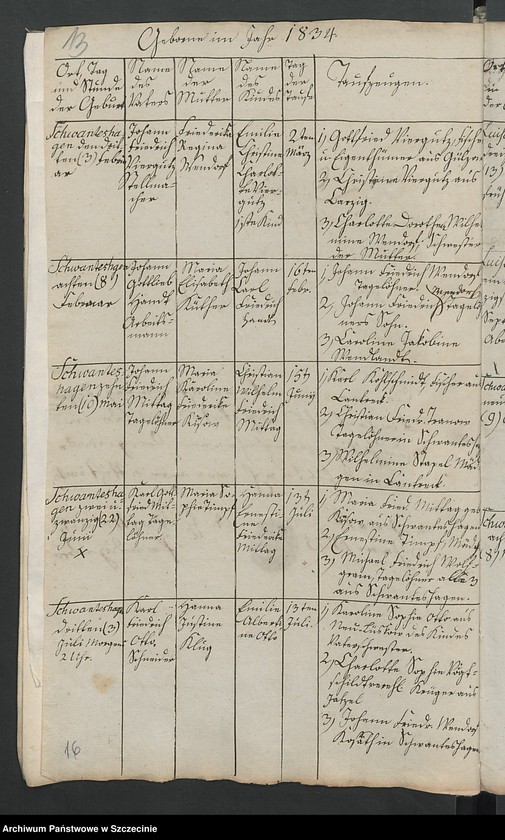 13
Geborne im Jahr 1834
Ort, Tag
und Stunde
der Geburt
Name
des
Vaters
Name
der
Mutter
Name
des
Kindes
Tag
der
Taufe
Taufzeugen.
Schwantesha-
gen den drit-
ten (3) Febru-
ar
Johann
Friedrich
Viergutz
Stellma-
cher
Friederike
Regina
Wendorf
Emilie
Christine
Charlot-
te Vier-
gutz
1ste Kind
2ten
März
1, Gottfried Viergutz,
u. Eigenthümer aus Gülzow
2, Christine Viergutz aus
3, Charlotte Dorothea Wilhel-
mine Wendorf, Schwester
der Mutter.
Schwanteshagen
achten (8)
Februar
Johann
Gottlieb
Arbeits-
mann
Maria
Elisabeth
Köther
Johann
Carl
Friedrich
16ten
Febr.
1, Johann Friedrich Wendorf
Tagelöhner.
2, Johann Friedrich Wendorf Tagelöh-
ners Sohn.
3, Caroline Jakobine
Wendlandt.
Schwantes-
hagen zehn-
ten (10) Mai
Johann
Friedrich
Mittag
Tagelöhner
Maria
Karoline
Friederike
Küsow
Christian
Wilhelm
Friedrich
Mittag
1st
Juny
1, Karl Fischer aus
Cantreck.
2, Christian Fried.
Tagelöhner in Schwantesha-
3, Wilhelmine Stapel Mäd-
gen in Cantreck.
Schwantesha-
gen zwei u.
zwanzig (22)
Juni
X
Karl Gott-
fried Mit-
tag Tage-
löhner.
Maria So-
phie Timpf
Hanna
Ernesti-
ne
Friederike
Mittag
13t
Juli
1, Maria Fried. Mittag geb
Küsow aus Schwanteshagen
2, Ernestine Timpf, Mädch
3, Michael Friedrich Wolf-
gram, Tagelöhner alle 3
aus Schwanteshagen.
Schwanteshagen
dritten (3)
Juli Morgen
2 Uhr.
Karl
Friedrich
Otto
Schneider
Hanna
Justine
Klug
Emilie
Alberti-
ne Otto
13ten
Juli.
1, Karoline Sophie Otto aus
des Kindes
Vaterschwester.
2, Charlotte Sophie
Krüger aus
3, Johann Friedr. Wendorf
Kossäth in Schwanteshagen
16
Archiwum Państwowe w Szczecinie